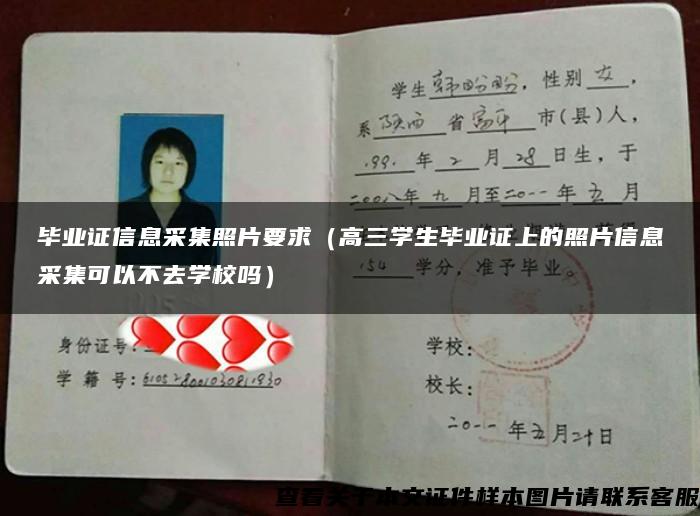 学生韩盼盼，性别女，
系陕西省富平市(县)人，
1991年2月28日生，于
二00八年九月至二0一一年五月
毕业证信息采集照片要求（高三学生毕业证上的照片信息
采集可以不去学校吗）
154学分，准予毕业。
身份证号：
学籍号：
学校：
校长：
二0一一年五月二十日
查看关于本文证件样本图片请联系客服